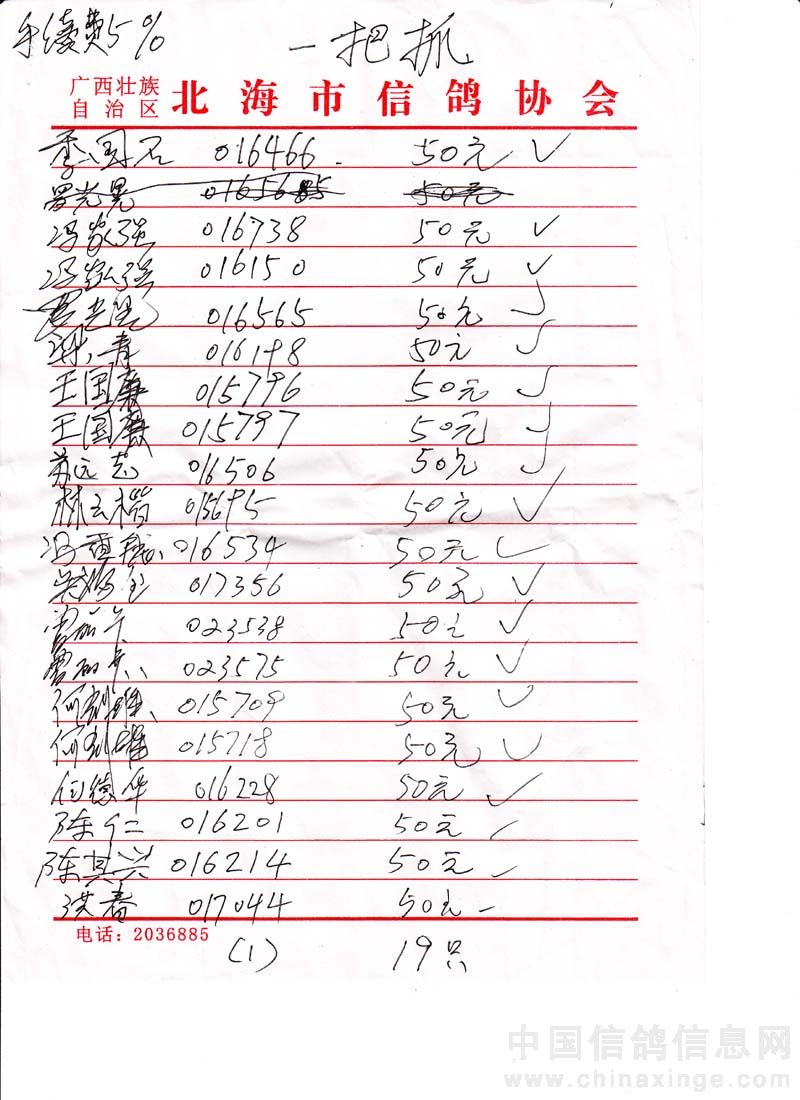 手续费5%
一把抓
广西壮族自治区 北海市信鸽协会
季国石 016466 50元 ✓
罗光晃 0165685 50元
冯家强 016738 50元 ✓
冯家强 016150 50元 ✓
罗光晃 016565 50元 ✓
青 016198 50元 ✓
王国 015796 50元 ✓
王国 015797 50元 ✓
苏远志 016506 50元 ✓
林云楷 015695 50元 ✓
冯 016534 50元 ✓
吴 017356 50元 ✓
曾 023538 50元 ✓
曾 023575 50元 ✓
何 015709 50元 ✓
何 015718 50元 ✓
德华 016228 50元 ✓
陈仁 016201 50元 ✓
陈其兴 016214 50元 ✓
洪春 017044 50元
电话:2036885
(1) 19只
中国信鸽信息网
www.chinaxinge.com